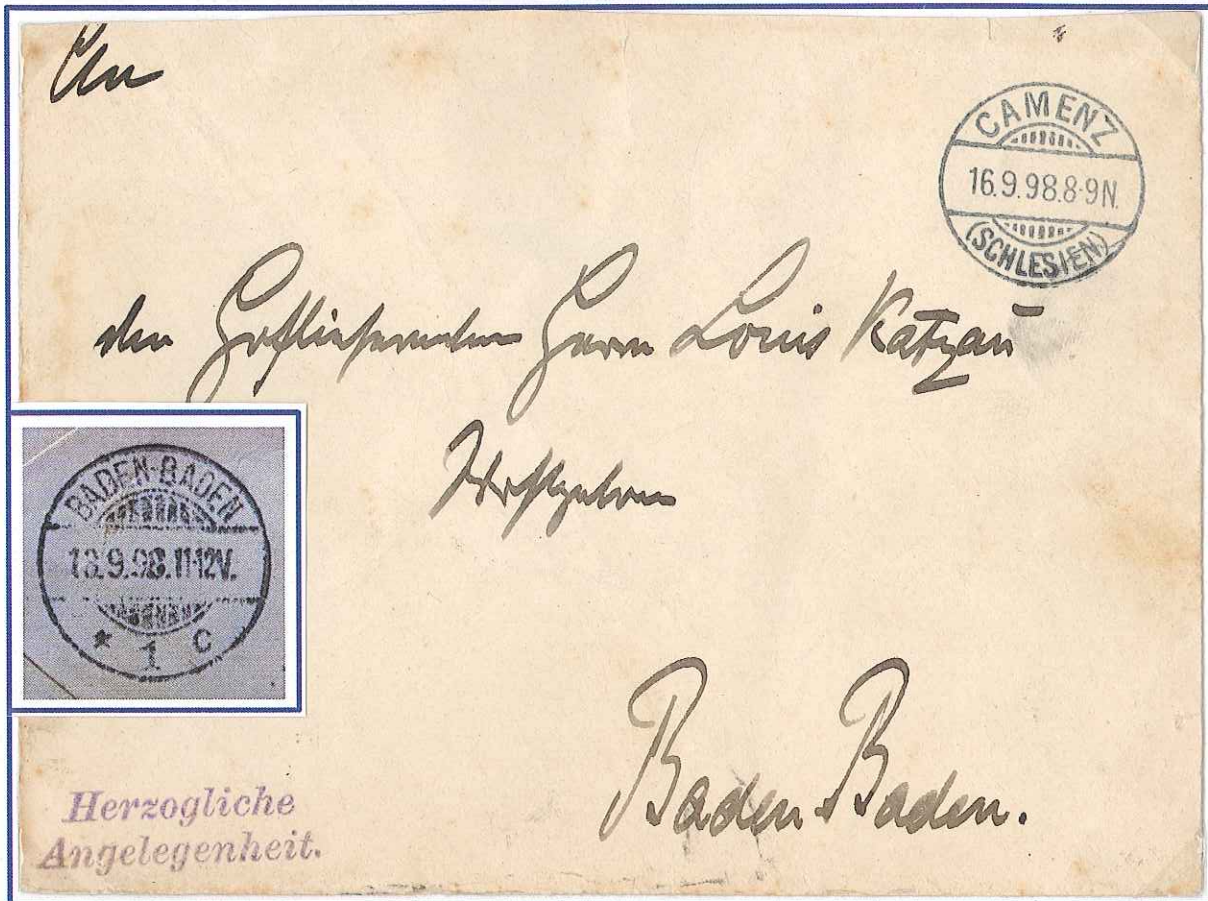 An
CAMENZ
16.9.98.8-9N.
(SCHLESIEN)
den Hoflieferanten Herrn Louis Katzau
Wohlgeboren
BADEN-BADEN
18.9.98.11-12V.
* 1 c
Baden-Baden.
Herzogliche
Angelegenheit.